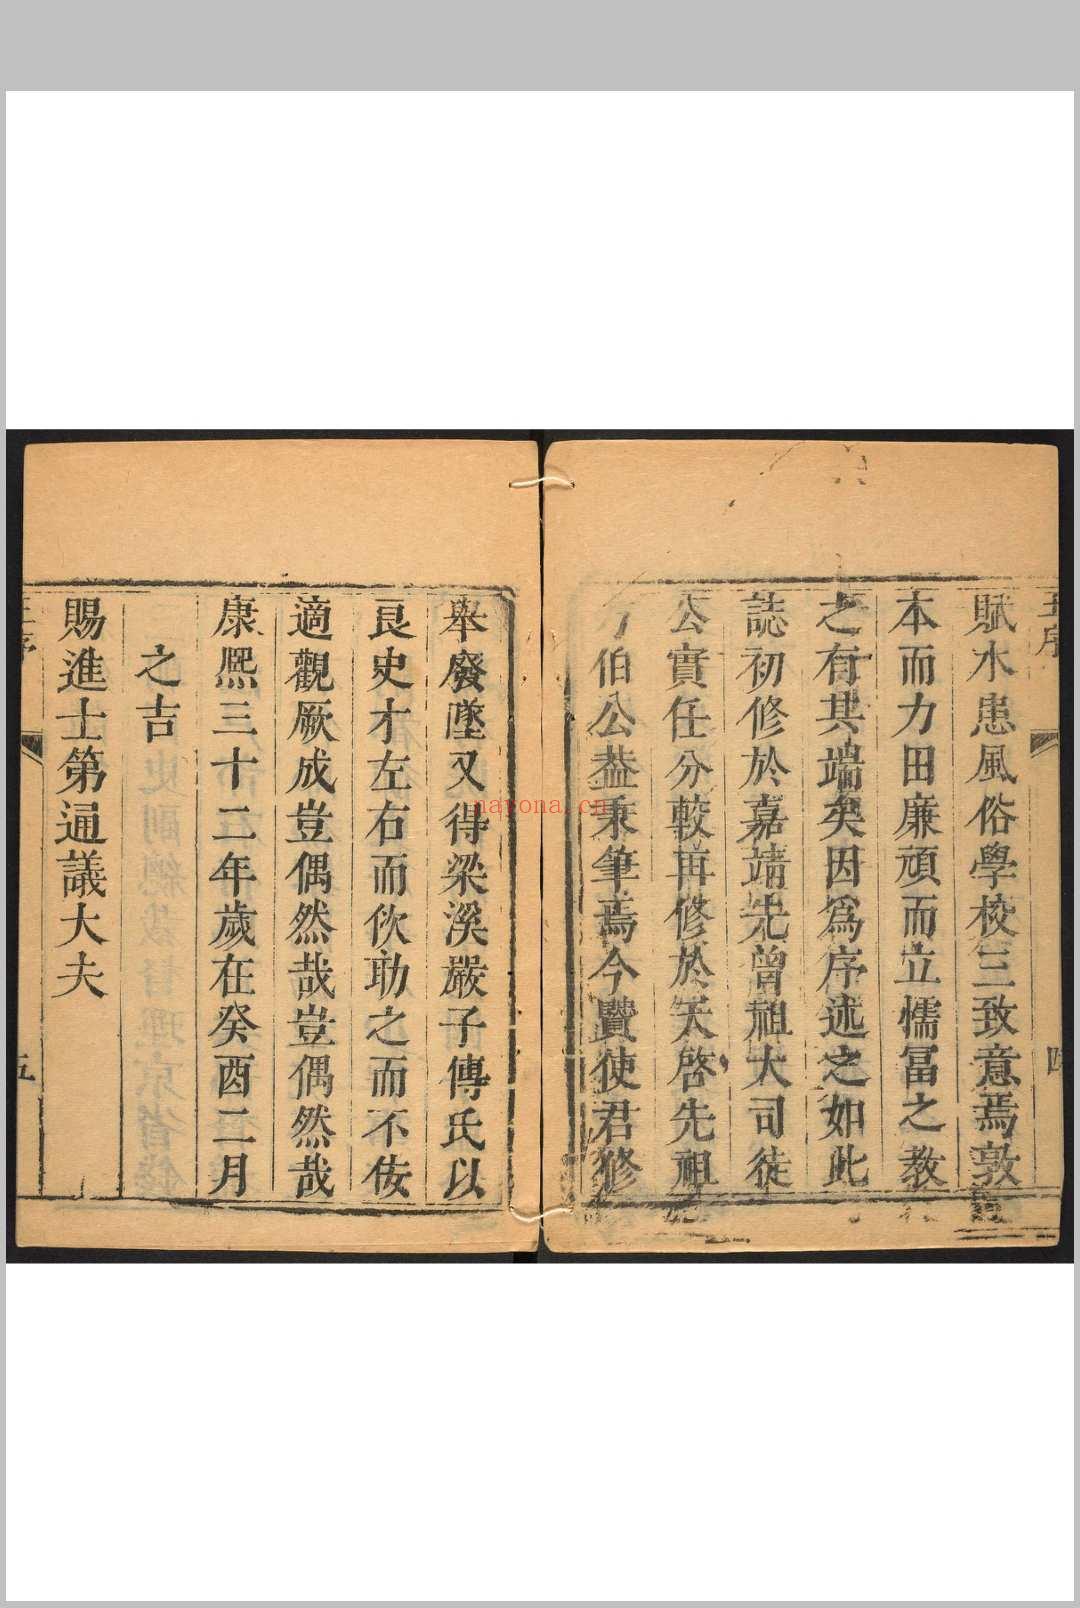 賦水患風俗學校三致意焉敦
本而力田廉頑而立懦冨之敎
之有其端矣因爲序述之如此
誌初修於嘉靖先曾祖大司徒
公實任分較再修於天啓先祖
方伯公葢秉筆焉今賢使君修
舉廢墜又得梁溪嚴子傳氏以
良史才左右而佽助之而不佞
適觀厥成豈偶然哉豈偶然哉
康熙三十二年歲在癸酉二月
之吉
賜進士第通議大夫
王序
五
nayona.cn